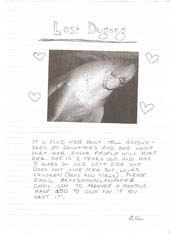 Lost Dugong
IF U FIND HER DONT TELL ANYONE-
SHES MY DAUGHTERS AND SHE WONT
HURT HER. OTHER PEOPLE WILL HURT
HER. SHE IS 2 YEARS OLD AND HAS
3 SCARS ON HER LEFT SIDE. SHE
DOES NOT LIKE MEN BUT LOVES
CHILDREN (BOYS AND GIRLS). PLEASE
EMAIL
GMAIL.COM TO ARRANGE A MEETING.
HAVE $50 TO GIVE YOU IF YOU
WANT IT.